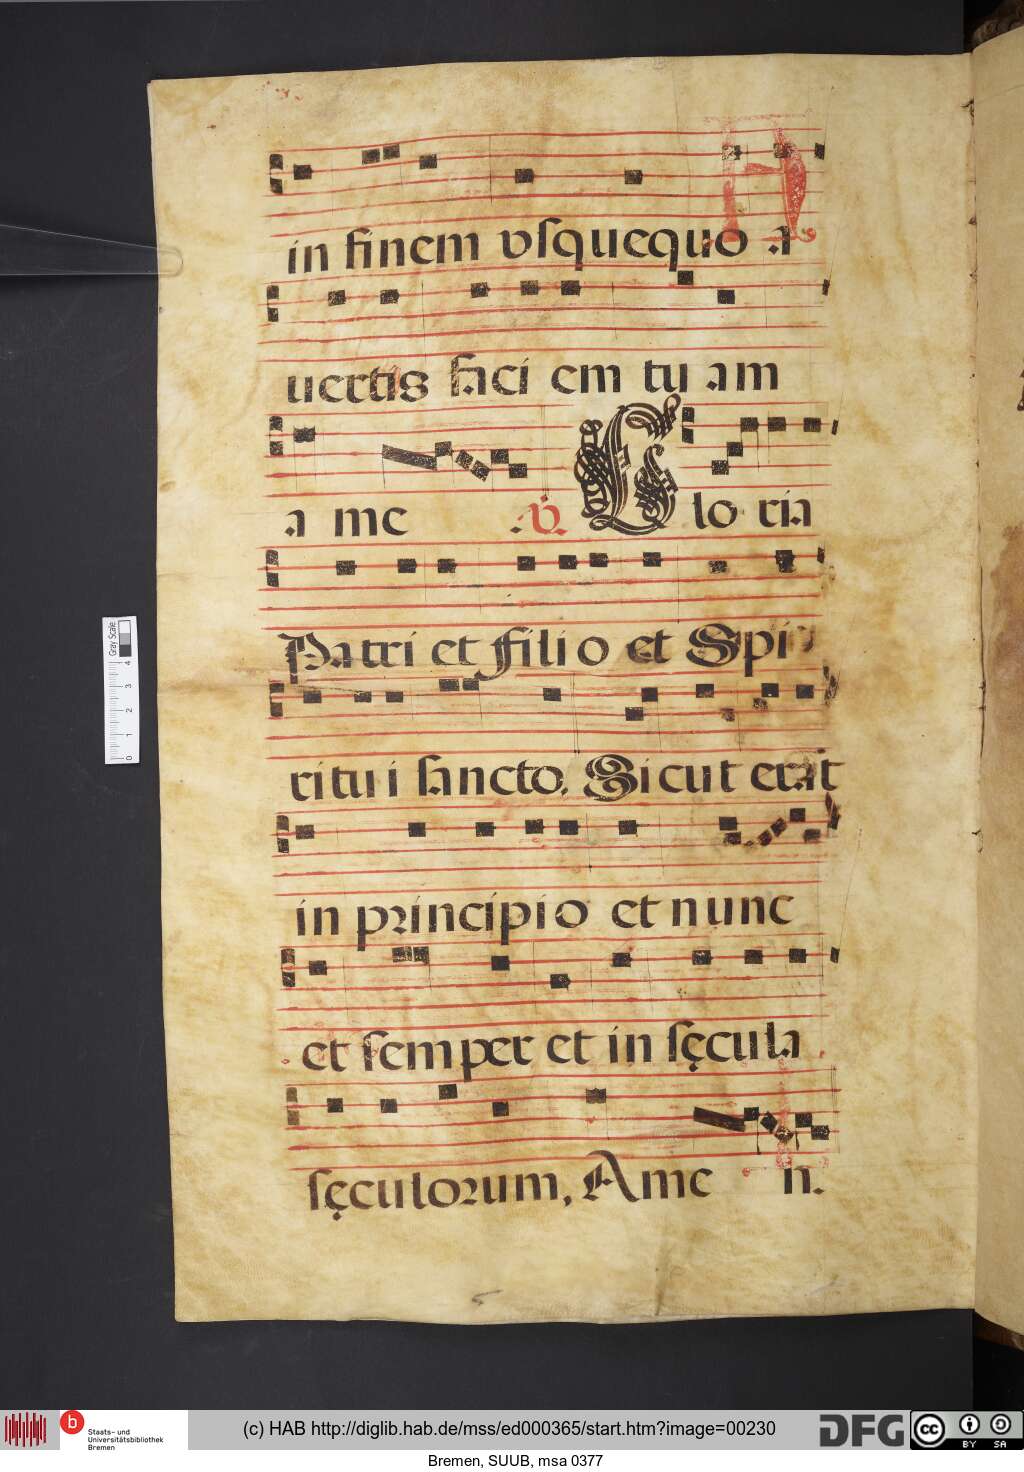 in finem vsquequo a
uertis faci em tu am
a me ℣. Glo ria
Patri et filio et Spi
ritui sancto. Sicut erat
in principio et nunc
et semper et in sęcula
sęculorum, Ame n.
Gray Scale
0 1 2 3 4
b Staats- und
Universitätsbibliothek
Bremen
(c) HAB http://diglib.hab.de/mss/ed000365/start.htm?image=00230
DFG
cc BY SA
Bremen, SUUB, msa 0377